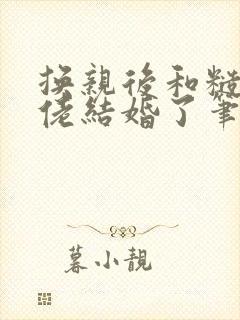 換親後和糙
佬結婚了筆
暮小靚